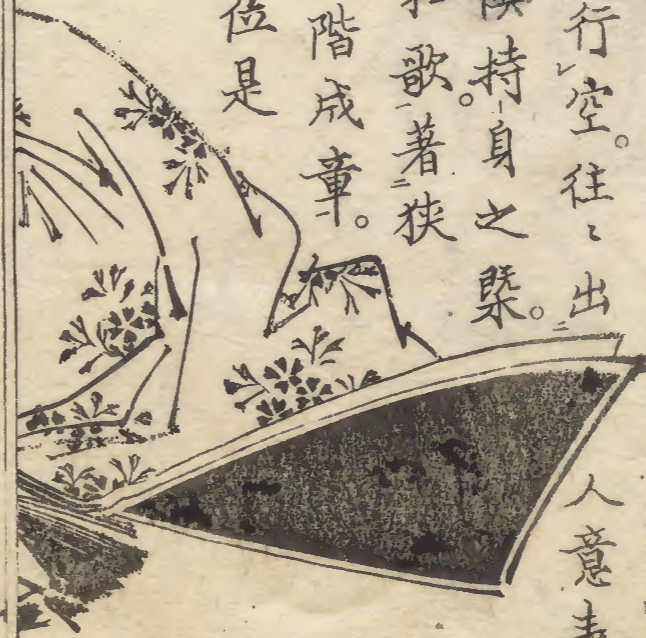 行空。往〻出人意表
持身之槩。
歌著狹
階成章。
位是